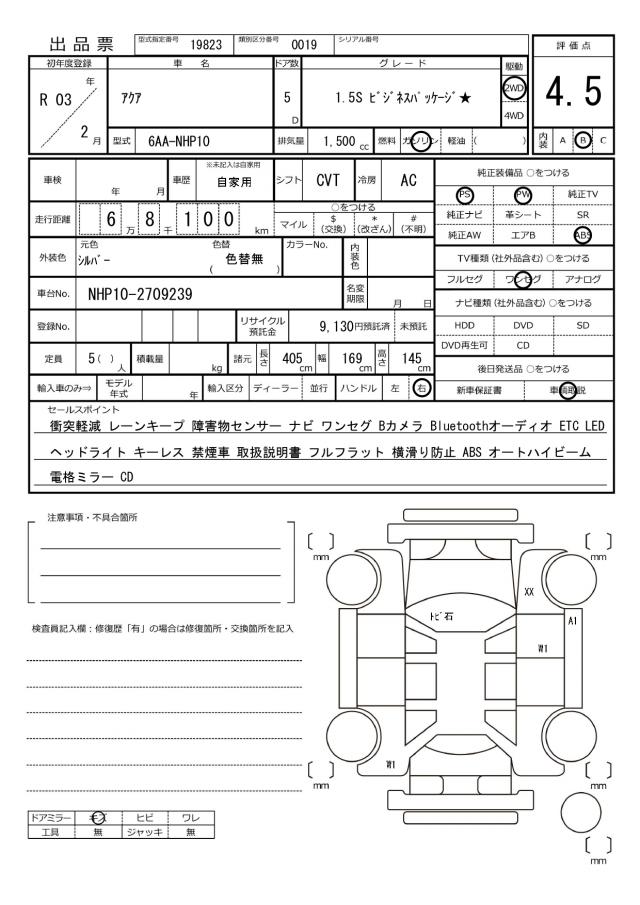 出品票 型式指定番号 19823 類別区分番号 0019 シリアル番号
評価点
4.5
内装 A B C
初年度登録 車名 ドア数 グレード 駆動
R 03 年 2 月 アクア 5 D 1.5S ビジネスパッケージ★ 2WD
4WD
型式 6AA-NHP10 排気量 1,500 cc 燃料 ガソリン 軽油 ( )
車検 年 月 車歴 ※未記入は自家用 自家用 シフト CVT 冷房 AC
走行距離 6 8 1 0 0 万 千 km
○をつける
マイル $ (交換) * (改ざん) # (不明)
外装色 元色 シルバー 色替 ( 色替無 ) カラーNo. 内装色
車台No. NHP10-2709239 名変期限 月 日
登録No. リサイクル預託金 9,130円預託済 未預託
定員 5 ( ) 人 積載量 kg 諸元 長さ 405 cm 幅 169 cm 高さ 145 cm
輸入車のみ⇒ モデル年式 年 輸入区分 ディーラー 並行 ハンドル 左 右
純正装備品 ○をつける
PS PW 純正TV
純正ナビ 革シート SR
純正AW エアB ABS
TV種類 (社外品含む) ○をつける
フルセグ ワンセグ アナログ
ナビ種類 (社外品含む) ○をつける
HDD DVD SD
DVD再生可 CD
後日発送品 ○をつける
新車保証書 車輌取説
セールスポイント
衝突軽減 レーンキープ 障害物センサー ナビ ワンセグ Bカメラ Bluetoothオーディオ ETC LED
ヘッドライト キーレス 禁煙車 取扱説明書 フルフラット 横滑り防止 ABS オートハイビーム
電格ミラー CD
注意事項・不具合箇所
検査員記入欄：修復歴「有」の場合は修復箇所・交換箇所を記入
ドアミラー キズ ヒビ ワレ
工具 無 ジャッキ 無
[ ] mm
[ ] mm
XX
トビ石
A1
W1
W1
[ ] mm
[ ] mm
[ ] mm